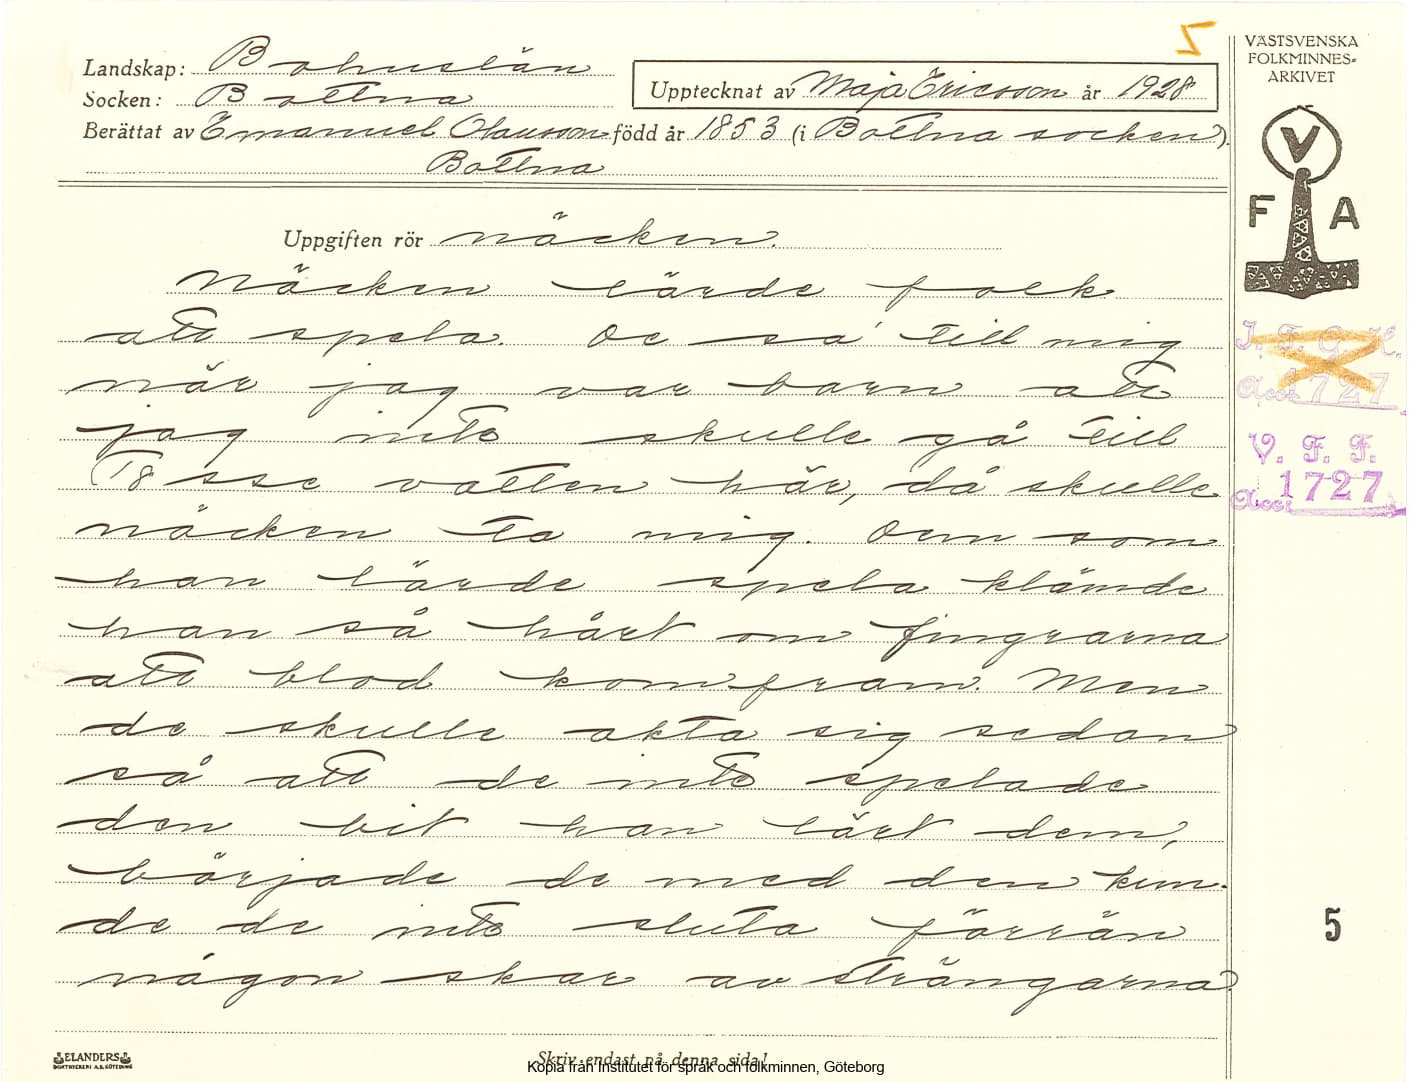 5
VÄSTSVENSKA
FOLKMINNES-
ARKIVET
Landskap: Bohuslän
Socken: Bottna
Upptecknat av Maja Ericsson år 1928
Berättat av Emanuel Olausson född år 1853 (i Bottna socken).
Bottna
V
F A
Uppgiften rör näcken.
Näcken lärde folk
att spela. De sa till mig
när jag var barn att
jag inte skulle gå till
vatten här, då skulle
näcken ta mig. Dem som
han lärde spela klämde
han så hårt om fingrarna
att blod kom fram. Men
de skulle akta sig sedan
så att de inte spelade
den bit han lärt dem,
började de med den kun-
de de inte sluta förrän
någon skar av strängarna.
I. F. G. H.
Acc. 1727
V. F. F.
Acc. 1727
5
ELANDERS
BOKTRYCKERI A.B. GÖTEBORG
Skriv endast på denna sida!
Kopia från Institutet för språk och folkminnen, Göteborg